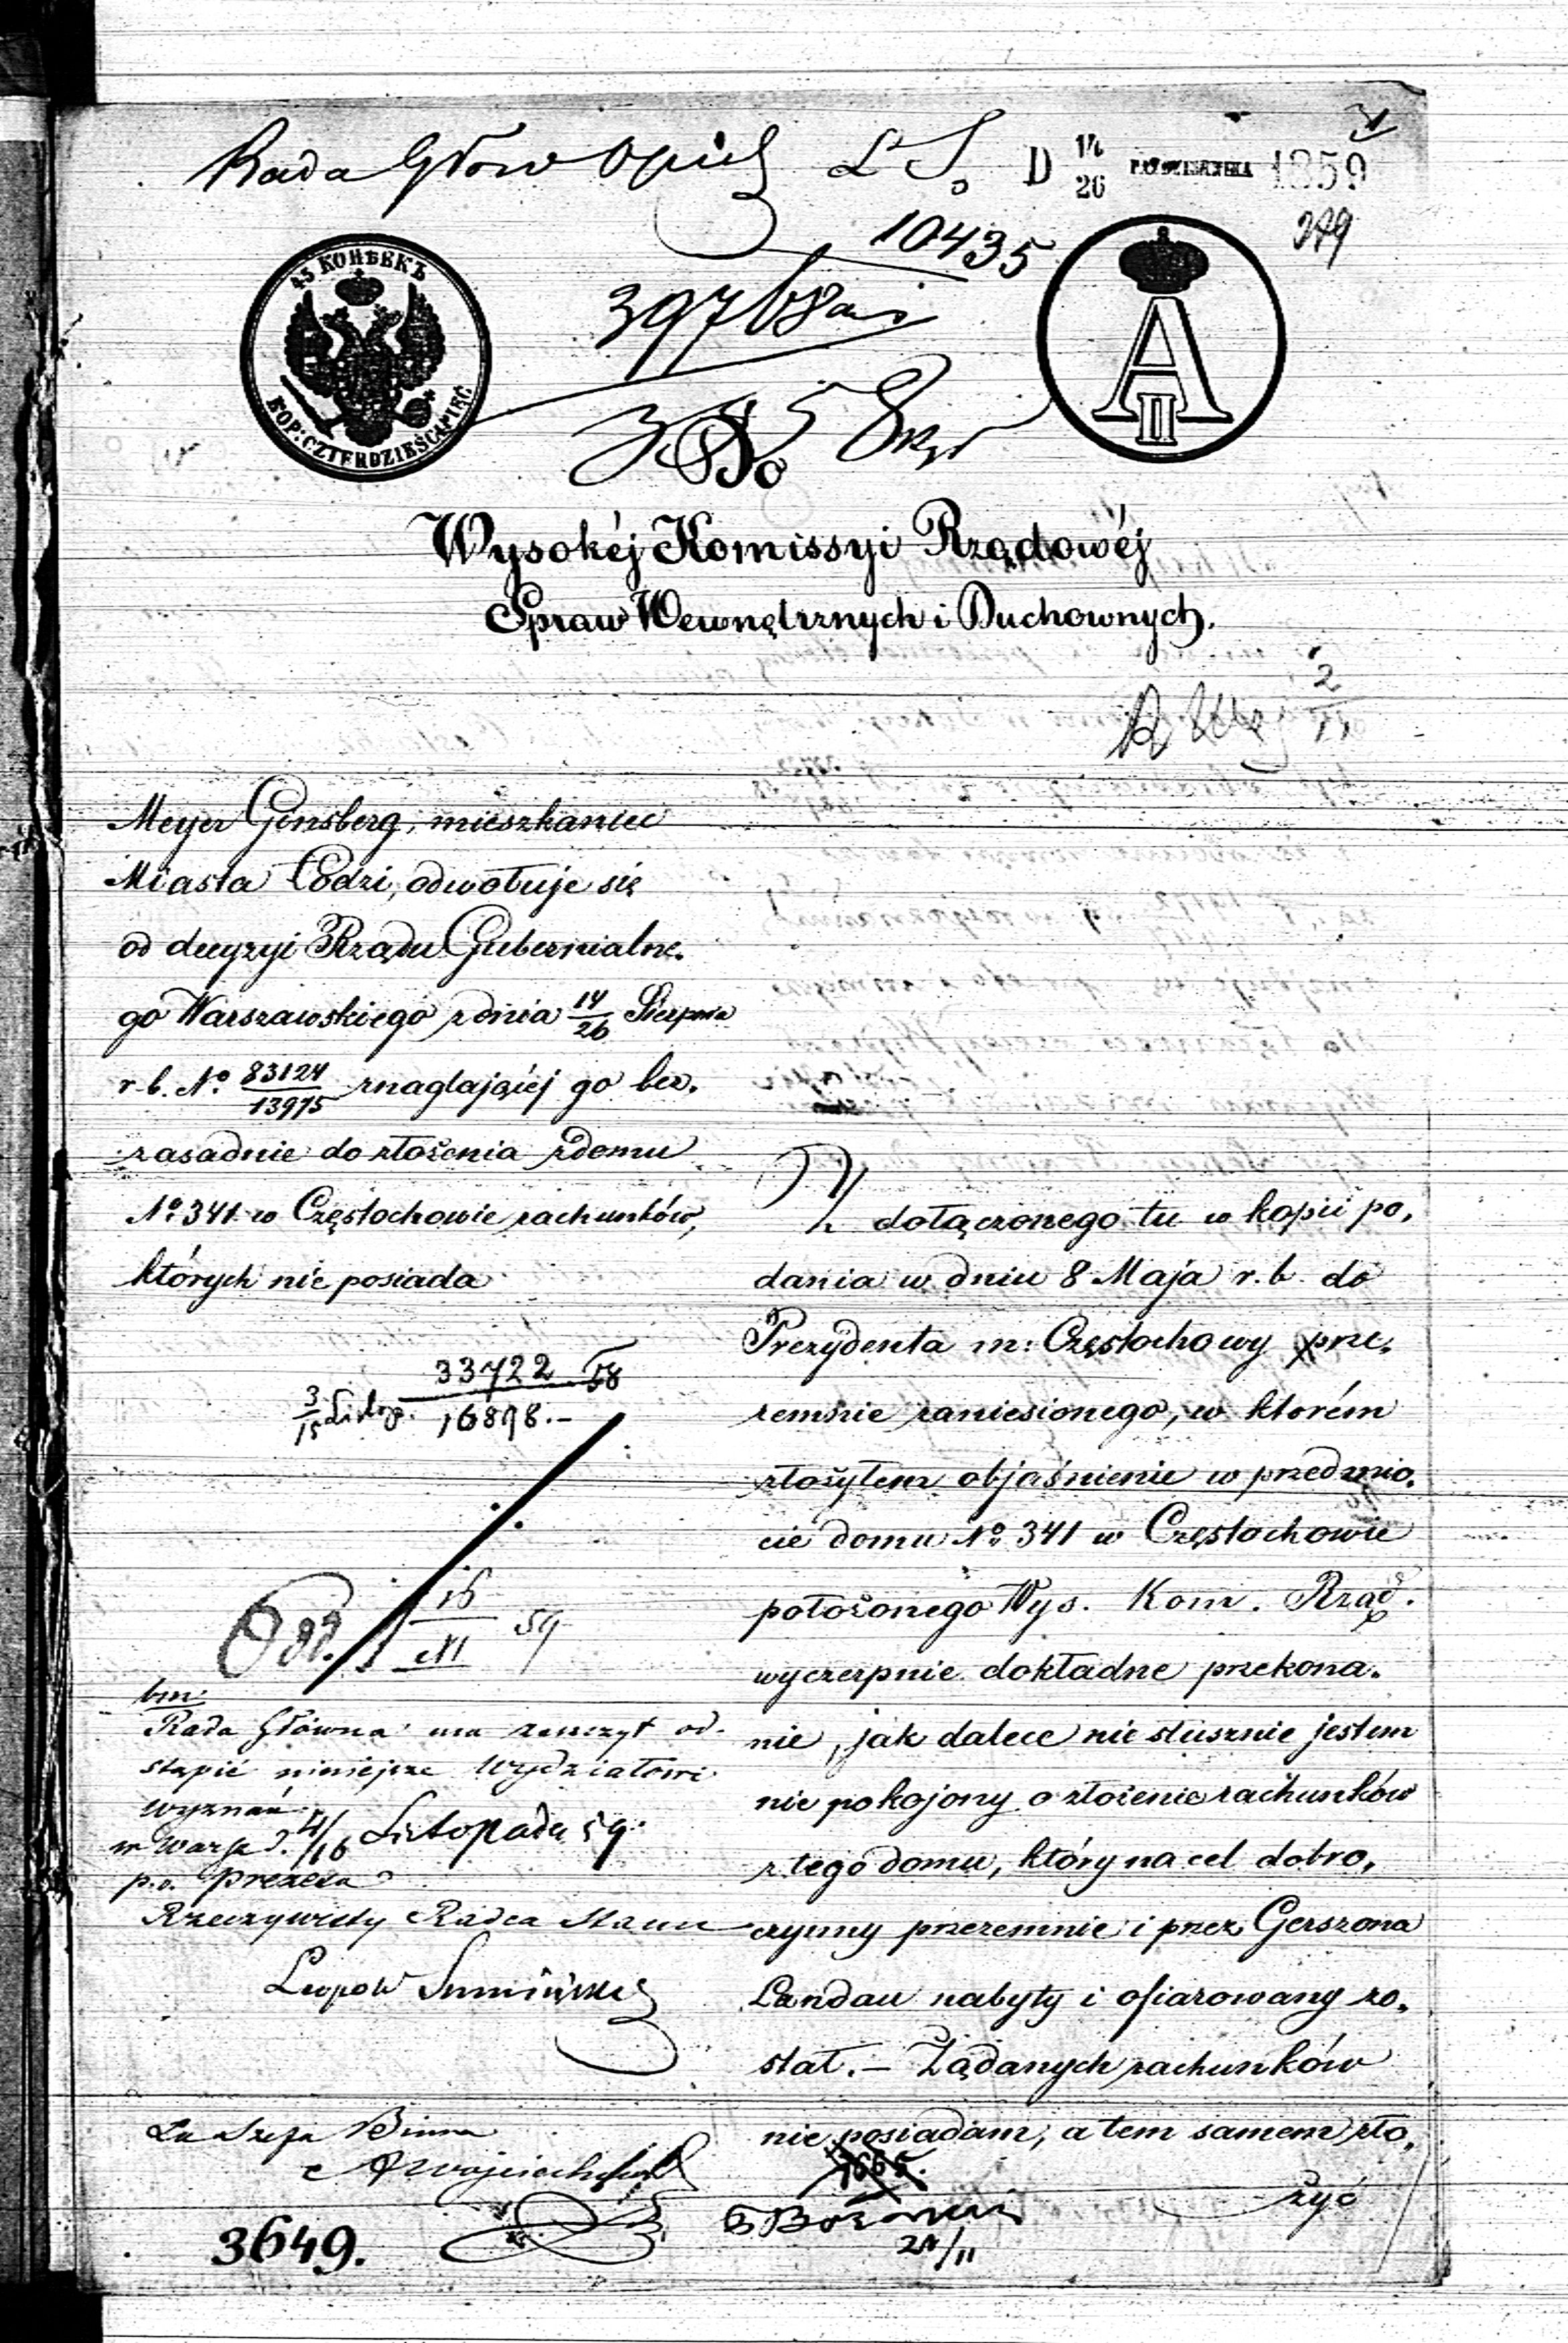 Rada Głów Opiek
D 14/26 PAŹDZIERNIKA 1859
10435
45 КОПѢЕКЪ
KOP: CZTERDZIEŚCI PIĘĆ
A II
Do
Wysokéj Komissyi Rządowéj
Spraw Wewnętrznych i Duchownych.
2/11
Meyer Ginsberg, mieszkaniec
Miasta Łodzi, odwołuje się
od decyzyi Rządu Gubernialne-
go Warszawskiego z dnia 14/26 Sierpnia
r. b. No 83124/13975 znaglającéj go bez-
zasadnie do złożenia z domu
No 341 w Częstochowie rachunków,
których nie posiada
33722
3/15 Listop. 16898.-
Odd. 16/XI 59
bm.
Rada Główna ma zaszczyt od-
stąpić niniejsze Wydziałowi
Wyznań
w Warsz d. 4/16 Listopada 59.
p.o. Prezesa
Rzeczywisty Radca Stanu
Leopold Sumiński
Za Szefa Biura
Wojciechowski
3649.
Z dołączonego tu w kopii po-
dania w dniu 8 Maja r. b. do
Prezydenta m: Częstochowy prze-
zemnie zaniesionego, w którém
złożyłem objaśnienie w przedmio-
cie domu No 341 w Częstochowie
położonego Wys. Kom. Rząd.
wyczerpnie dokładne przekona-
nie, jak dalece nie słusznie jestem
nie pokojony o złożenie rachunków
z tego domu, który na cel dobro-
czynny przezemnie i przez Gerszona
Landau nabyty i ofiarowany zo-
stał. – Żądanych rachunków
nie posiadam, a tem samem zło-
żyć